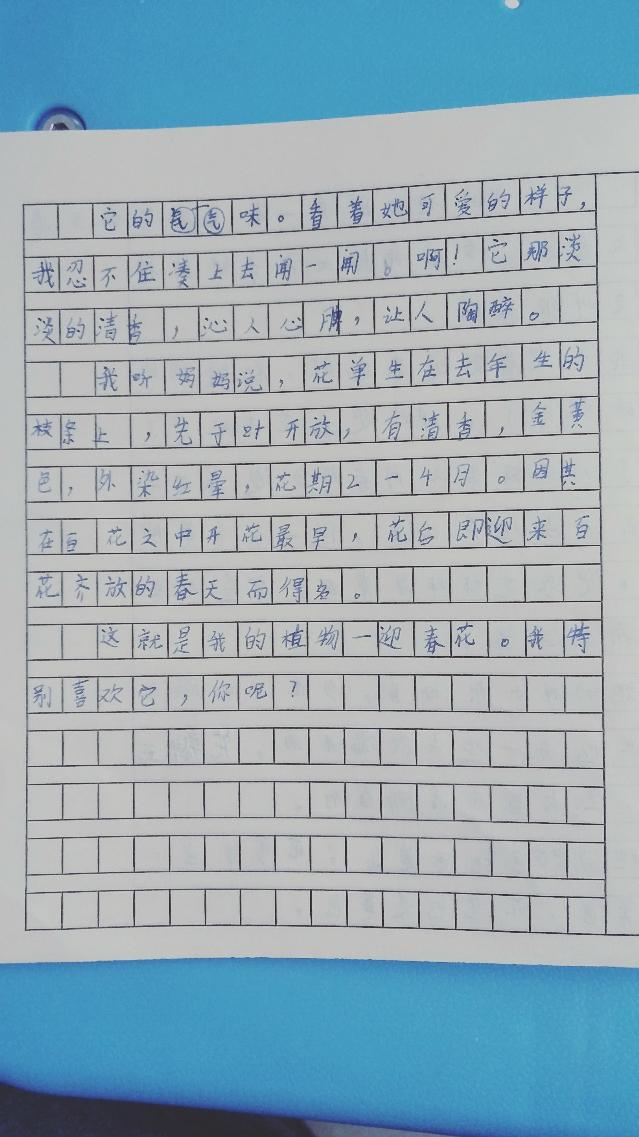 它的气味。看着她可爱的样子，
我忍不住凑上去闻一闻。啊！它那淡
淡的清香，沁人心脾，让人陶醉。
我听妈妈说，花单生在去年生的
枝条上，先于叶开放，有清香，金黄
色，外染红晕，花期2－4月。因其
在百花之中开花最早，花后即迎来百
花齐放的春天而得名。
这就是我的植物－迎春花。我特
别喜欢它，你呢？